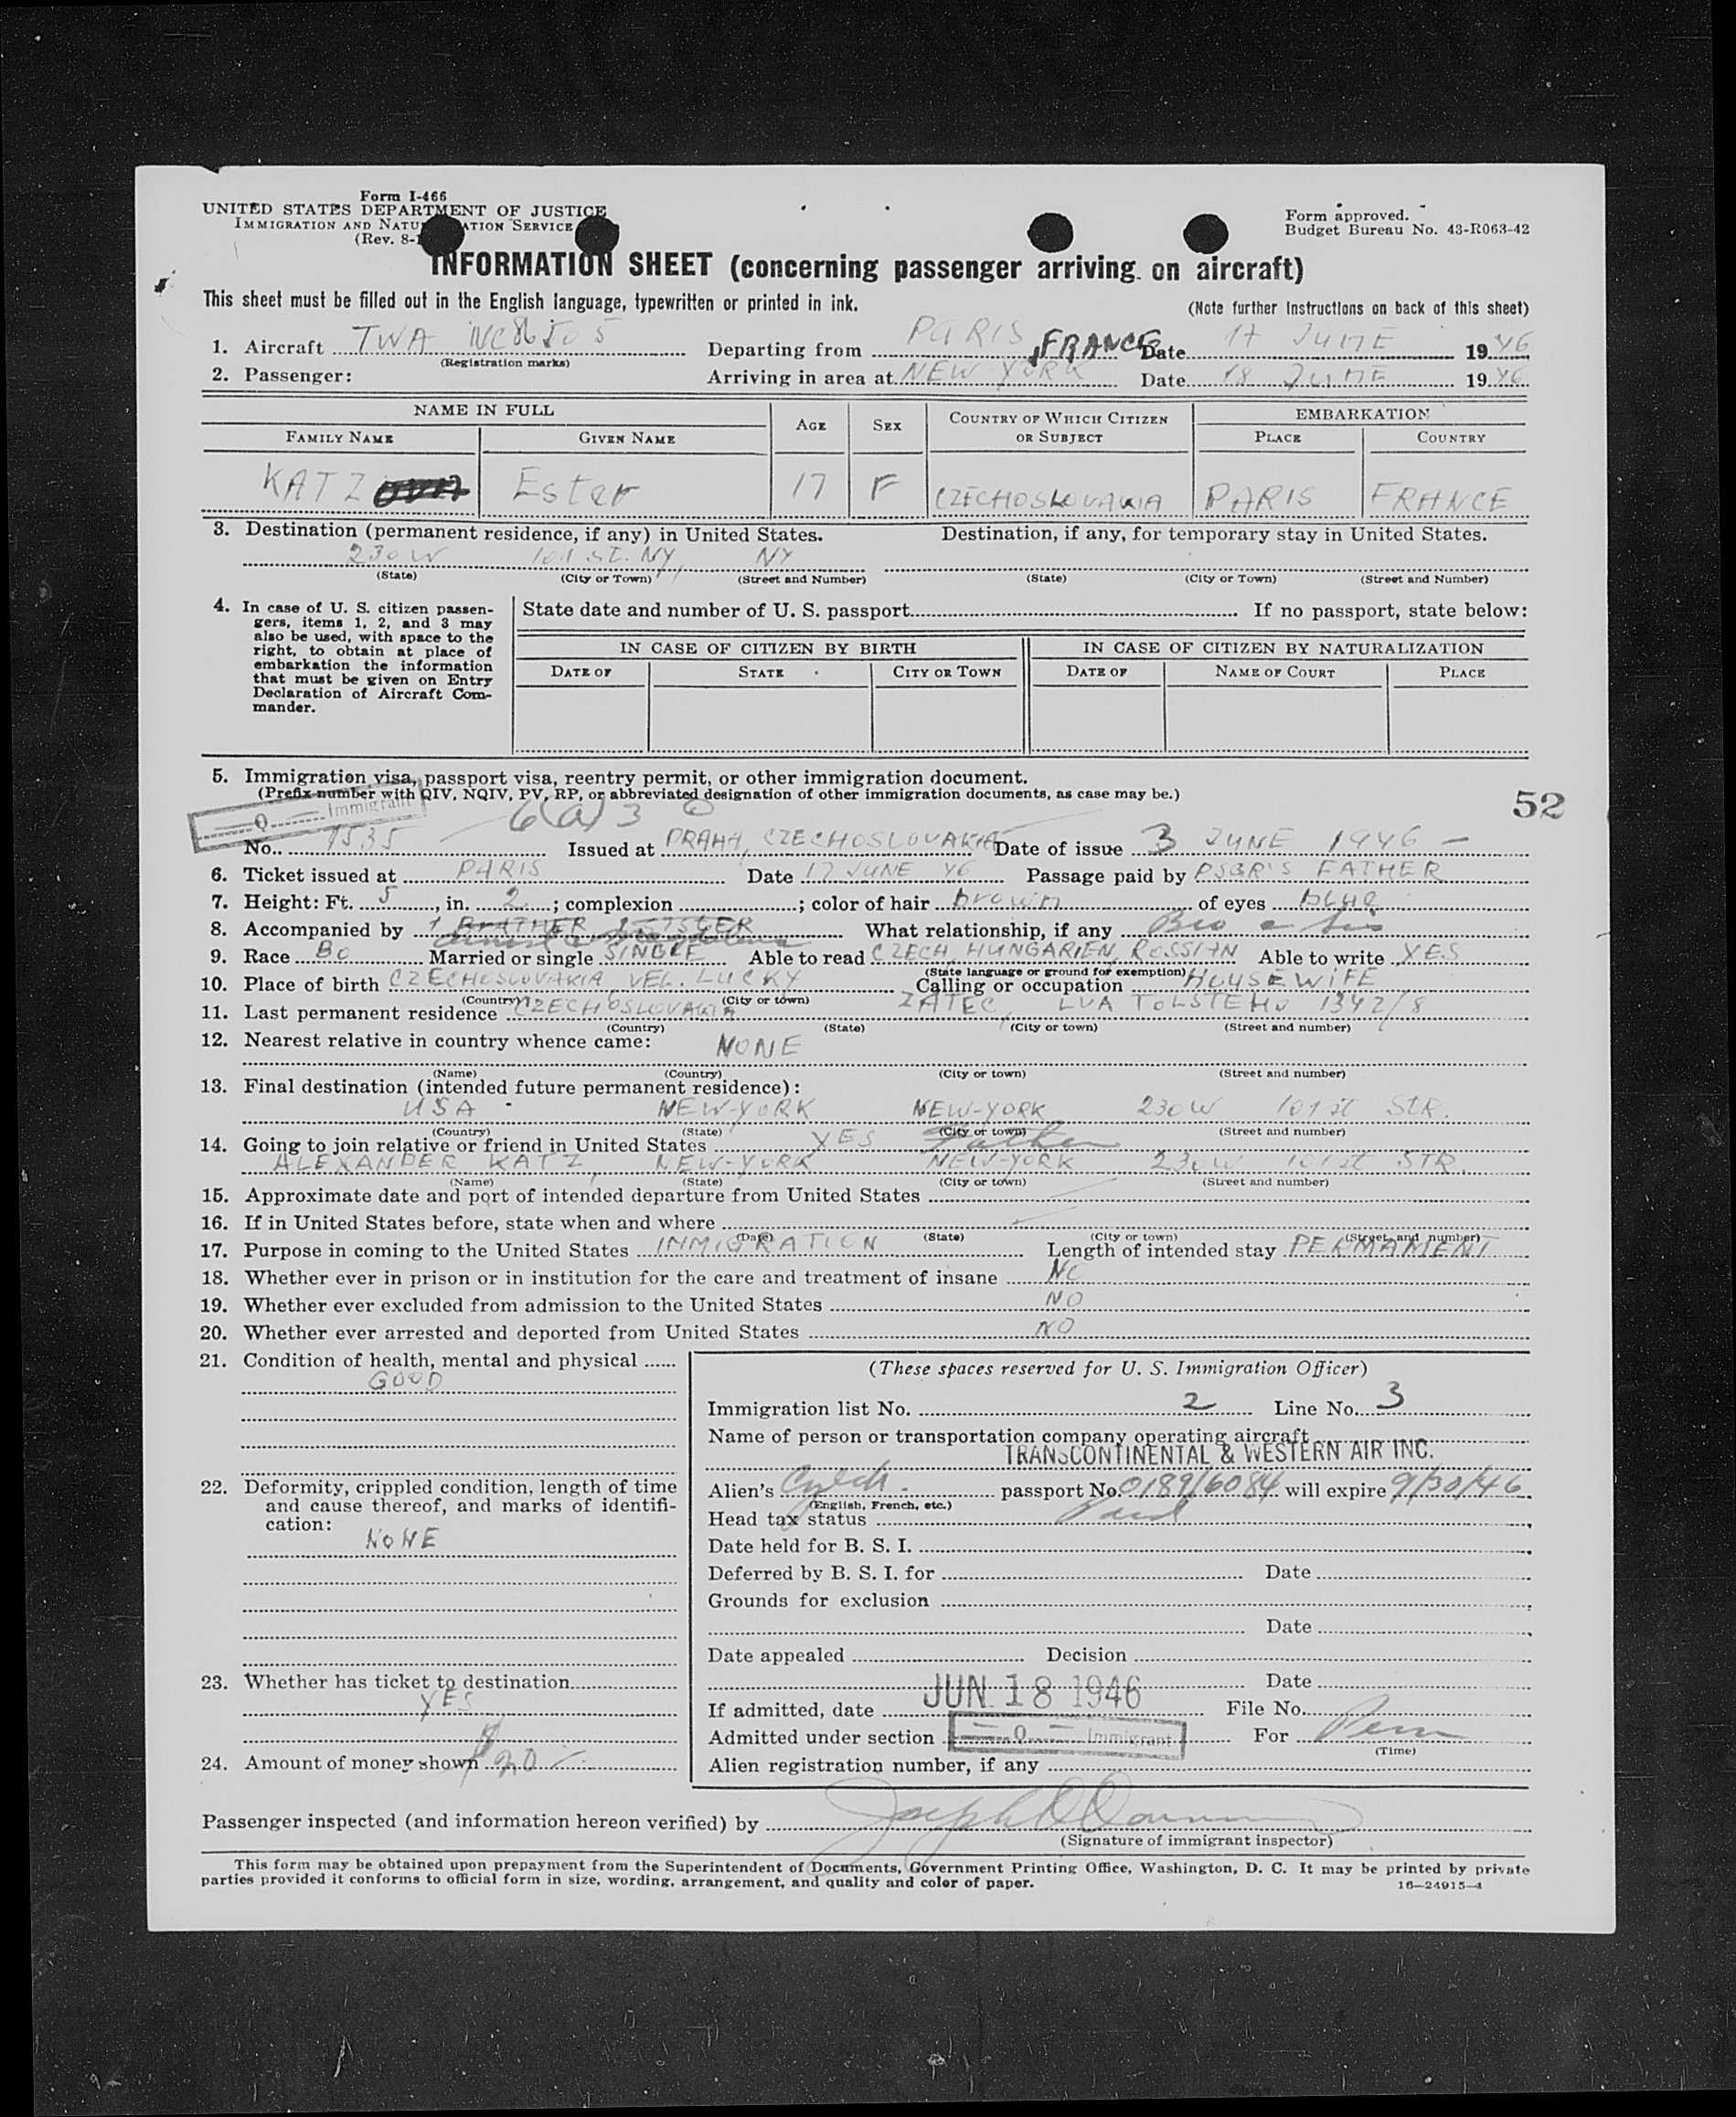 Form I-466
UNITED STATES DEPARTMENT OF JUSTICE
IMMIGRATION AND NATU ATION SERVICE
(Rev. 8-
Form approved.
Budget Bureau No. 43-R063-42
INFORMATION SHEET (concerning passenger arriving on aircraft)
This sheet must be filled out in the English language, typewritten or printed in ink. (Note further instructions on back of this sheet)
1. Aircraft TWA NC86505 Departing from PARIS, FRANCE Date 17 JUNE 1946
(Registration marks)
2. Passenger: Arriving in area at NEW YORK Date 18 JUNE 1946
NAME IN FULL AGE SEX COUNTRY OF WHICH CITIZEN OR SUBJECT EMBARKATION
FAMILY NAME GIVEN NAME PLACE COUNTRY
KATZ Ester 17 F CZECHOSLOVAKIA PARIS FRANCE
3. Destination (permanent residence, if any) in United States. Destination, if any, for temporary stay in United States.
230 W 101 ST. NY, NY
(State) (City or Town) (Street and Number) (State) (City or Town) (Street and Number)
4. In case of U. S. citizen passen-
gers, items 1, 2, and 3 may
also be used, with space to the
right, to obtain at place of
embarkation the information
that must be given on Entry
Declaration of Aircraft Com-
mander.
State date and number of U. S. passport If no passport, state below:
IN CASE OF CITIZEN BY BIRTH IN CASE OF CITIZEN BY NATURALIZATION
DATE OF STATE CITY OR TOWN DATE OF NAME OF COURT PLACE
5. Immigration visa, passport visa, reentry permit, or other immigration document.
(Prefix number with QIV, NQIV, PV, RP, or abbreviated designation of other immigration documents, as case may be.)
52
Q Immigrant
6(a)3
No. 1535 Issued at PRAHA, CZECHOSLOVAKIA Date of issue 3 JUNE 1946
6. Ticket issued at PARIS Date 17 JUNE 46 Passage paid by PSGR'S FATHER
7. Height: Ft. 5, in. 2; complexion ; color of hair brown of eyes blue
8. Accompanied by 1 BROTHER 1 SISTER What relationship, if any Bro & Sis
9. Race Bo Married or single SINGLE Able to read CZECH, HUNGARIEN, RUSSIAN Able to write YES
(State language or ground for exemption)
10. Place of birth CZECHOSLOVAKIA VEL. LUCKY Calling or occupation HOUSEWIFE
(Country) (City or town)
11. Last permanent residence CZECHOSLOVAKIA ZATEC, LVA TOLSTEHO 1342/8
(Country) (State) (City or town) (Street and number)
12. Nearest relative in country whence came: NONE
(Name) (Country) (City or town) (Street and number)
13. Final destination (intended future permanent residence):
USA NEW-YORK NEW-YORK 230 W 101 st STR.
(Country) (State) (City or town) (Street and number)
14. Going to join relative or friend in United States YES Father
ALEXANDER KATZ, NEW-YORK NEW-YORK 230 W 101 st STR.
(Name) (State) (City or town) (Street and number)
15. Approximate date and port of intended departure from United States
16. If in United States before, state when and where
(Date) (State) (City or town) (Street and number)
17. Purpose in coming to the United States IMMIGRATION Length of intended stay PERMAMENT
18. Whether ever in prison or in institution for the care and treatment of insane NO
19. Whether ever excluded from admission to the United States NO
20. Whether ever arrested and deported from United States NO
21. Condition of health, mental and physical
GOOD
22. Deformity, crippled condition, length of time
and cause thereof, and marks of identifi-
cation:
NONE
23. Whether has ticket to destination
YES
24. Amount of money shown $20
(These spaces reserved for U. S. Immigration Officer)
Immigration list No. 2 Line No. 3
Name of person or transportation company operating aircraft
TRANSCONTINENTAL & WESTERN AIR INC.
Alien's Czech. passport No. 0189/6084 will expire 9/30/46
(English, French, etc.)
Head tax status Paid
Date held for B. S. I.
Deferred by B. S. I. for Date
Grounds for exclusion
Date
Date appealed Decision
Date
If admitted, date JUN 18 1946 File No.
Admitted under section Q Immigrant For Perm
(Time)
Alien registration number, if any
Passenger inspected (and information hereon verified) by
(Signature of immigrant inspector)
This form may be obtained upon prepayment from the Superintendent of Documents, Government Printing Office, Washington, D. C. It may be printed by private
parties provided it conforms to official form in size, wording, arrangement, and quality and color of paper. 16—24915-1